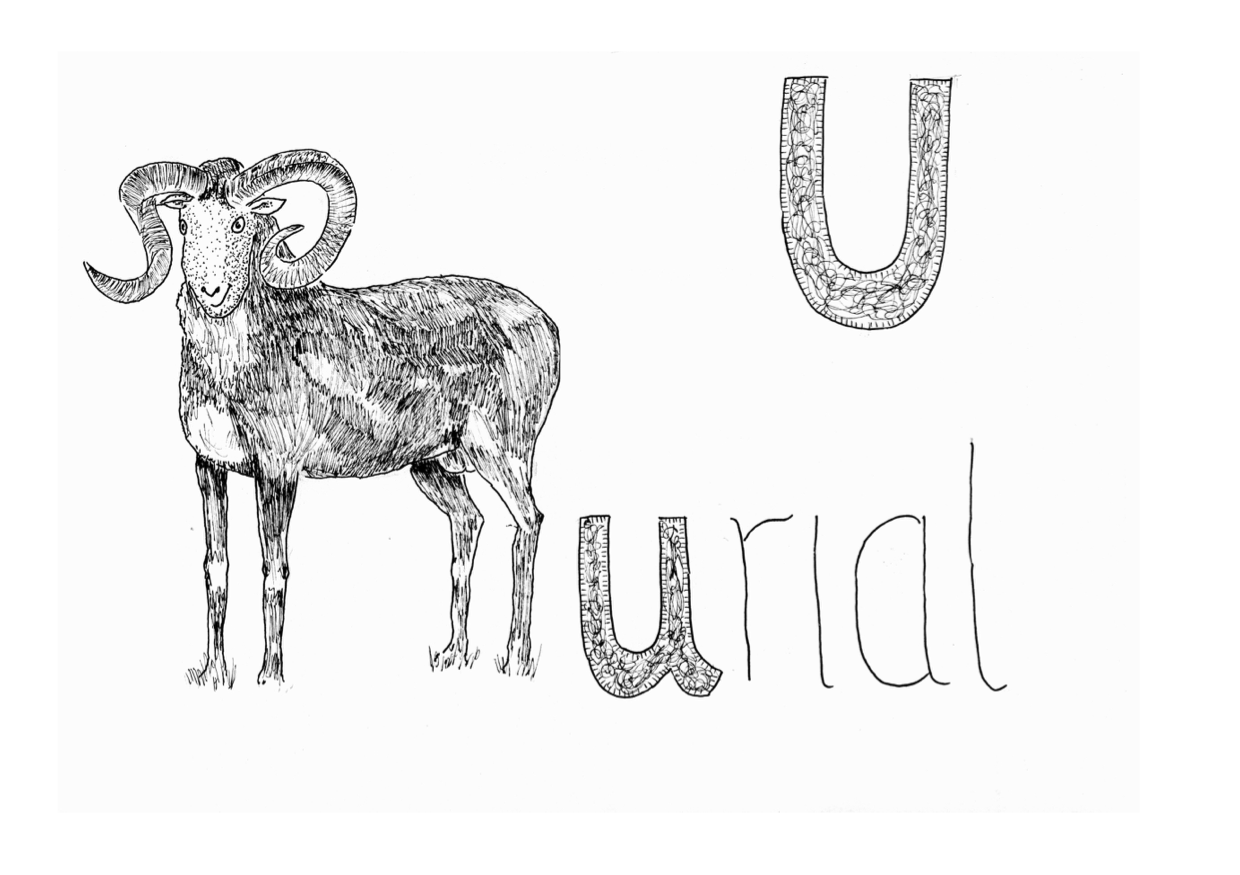 U
urial